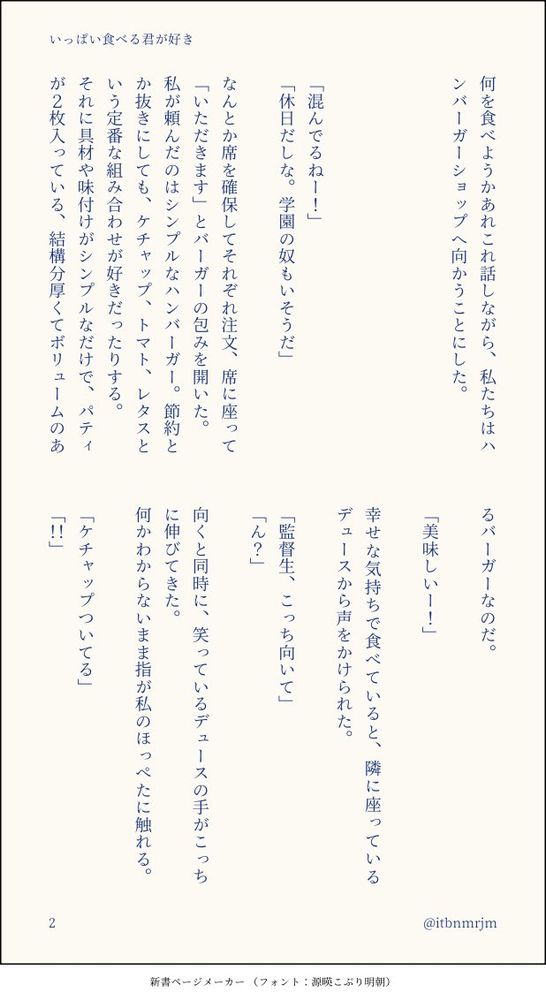 いっぱい食べる君が好き
何を食べようかあれこれ話しながら、私たちはハ
ンバーガーショップへ向かうことにした。
「混んでるねー！」
「休日だしな。学園の奴もいそうだ」
なんとか席を確保してそれぞれ注文、席に座って
「いただきます」とバーガーの包みを開いた。
私が頼んだのはシンプルなハンバーガー。節約と
か抜きにしても、ケチャップ、トマト、レタスと
いう定番な組み合わせが好きだったりする。
それに具材や味付けがシンプルなだけで、パティ
が２枚入っている、結構分厚くてボリュームのあ
るバーガーなのだ。
「美味しいー！」
幸せな気持ちで食べていると、隣に座っている
デュースから声をかけられた。
「監督生、こっち向いて」
「ん？」
向くと同時に、笑っているデュースの手がこっち
に伸びてきた。
何かわからないまま指が私のほっぺたに触れる。
「ケチャップついてる」
「!!」
2
@itbnmrjm
新書ページメーカー（フォント：源暎こぶり明朝）